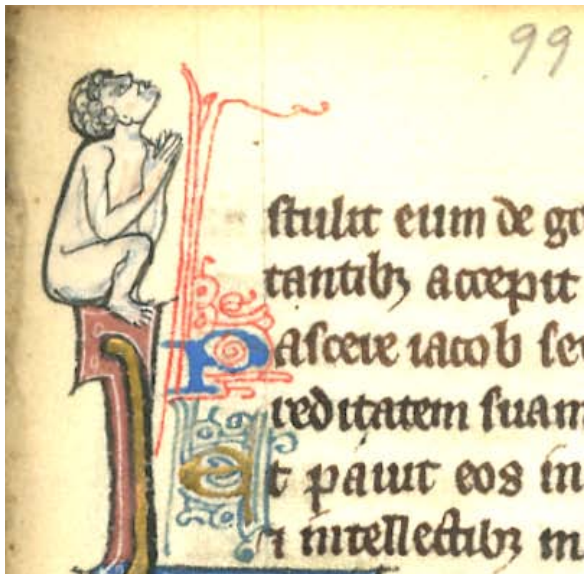 99
stulit eum de g
tantibꝫ accepit
Pascere iacob se
reditatem suam
Et pauit eos in
⁊ intellectibꝫ m